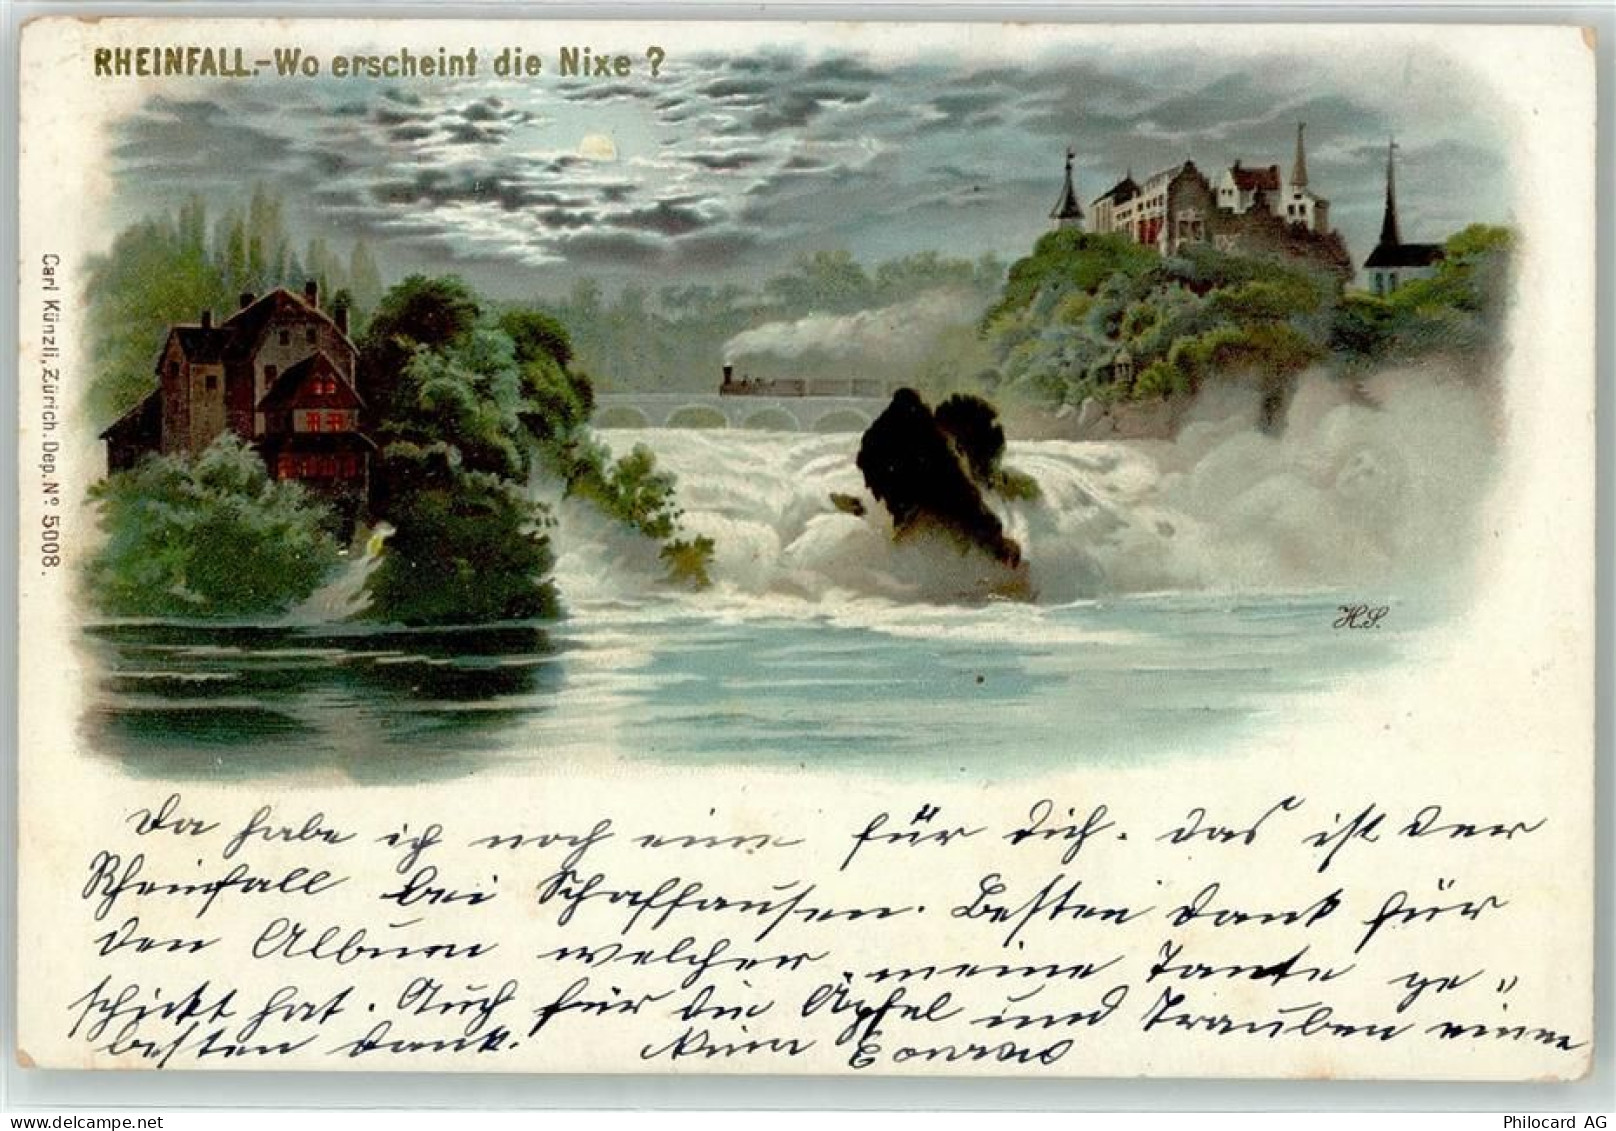 RHEINFALL.-Wo erscheint die Nixe ?
Carl Künzli, Zürich. Dep. Nº 5008.
H.S.
Da habe ich noch eine für dich. das ist der
Rheinfall bei Schaffausen. Besten Dank für
den Album welcher meine Tante ge„
schickt hat. Auch für die Äpfel und Trauben einen
besten Dank.
Philocard AG